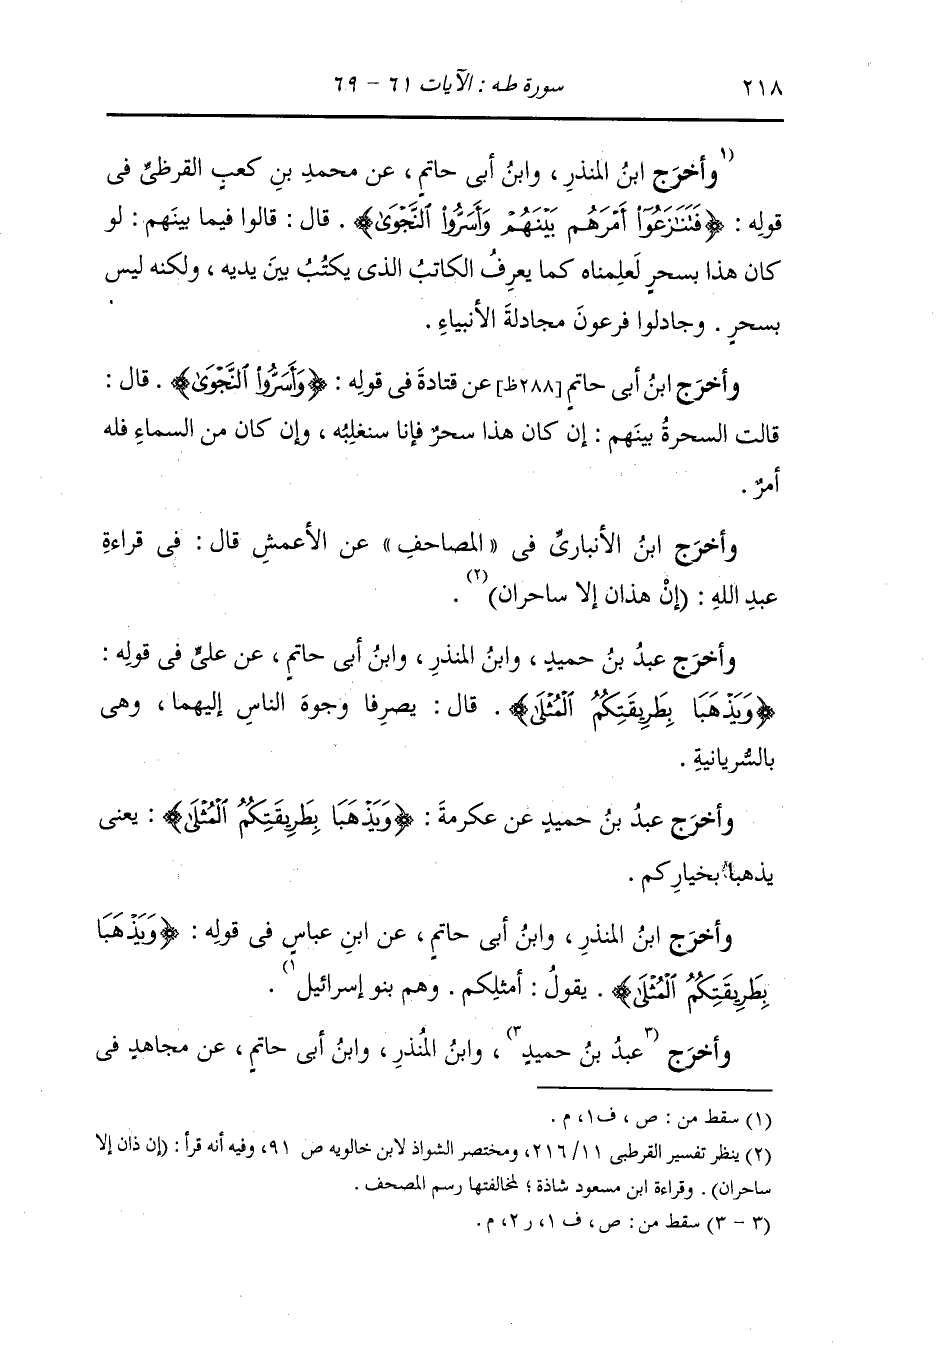 ٢١٨ سورة طه : الآيات ٦١ - ٦٩
(١ وأخرَج ابنُ المنذرِ ، وابنُ أبى حاتمٍ ، عن محمدِ بنِ كعبٍ القرظىِّ فى
قولِه : ﴿فَتَنَٰزَعُوٓا۟ أَمْرَهُم بَيْنَهُمْ وَأَسَرُّوا۟ ٱلنَّجْوَىٰ﴾ . قال : قالوا فيما بينَهم : لو
كان هذا بسحرٍ لَعلِمناه كما يعرِفُ الكاتبُ الذى يكتُبُ بينَ يديه ، ولكنه ليس
بسحرٍ . وجادلوا فرعونَ مجادلةَ الأنبياءِ .
وأخرَج ابنُ أبى حاتمٍ [٢٨٨ظ] عن قتادةَ فى قولِه : ﴿وَأَسَرُّوا۟ ٱلنَّجْوَىٰ﴾ . قال :
قالت السحرةُ بينَهم : إن كان هذا سحرٌ فإنا سنغلِبُه ، وإن كان من السماءِ فله
أمرٌ .
وأخرَج ابنُ الأنبارىِّ فى « المصاحفِ » عن الأعمشِ قال : فى قراءةِ
عبدِ اللهِ : (إنْ هذان إلا ساحران)(٢) .
وأخرَج عبدُ بنُ حميدٍ ، وابنُ المنذرِ ، وابنُ أبى حاتمٍ ، عن علىٍّ فى قولِه :
﴿وَيَذْهَبَا بِطَرِيقَتِكُمُ ٱلْمُثْلَىٰ﴾ . قال : يصرِفا وجوهَ الناسِ إليهما ، وهى
بالسُّريانيةِ .
وأخرَج عبدُ بنُ حميدٍ عن عكرمةَ : ﴿وَيَذْهَبَا بِطَرِيقَتِكُمُ ٱلْمُثْلَىٰ﴾ : يعنى
يذهبا بخيارِكم .
وأخرَج ابنُ المنذرِ ، وابنُ أبى حاتمٍ ، عن ابنِ عباسٍ فى قولِه : ﴿وَيَذْهَبَا
بِطَرِيقَتِكُمُ ٱلْمُثْلَىٰ﴾ . يقولُ : أمثلِكم . وهم بنو إسرائيل ١) .
وأخرَج (٣ عبدُ بنُ حميدٍ ٣) ، وابنُ المُنذرِ ، وابنُ أبى حاتمٍ ، عن مجاهدٍ فى
(١) سقط من : ص ، ف١ ، م .
(٢) ينظر تفسير القرطبى ١١/ ٢١٦، ومختصر الشواذ لابن خالويه ص ٩١، وفيه أنه قرأ : (إن ذان إلا
ساحران) . وقراءة ابن مسعود شاذة ؛ لمخالفتها رسم المصحف .
(٣ - ٣) سقط من : ص ، ف ١، ر ٢، م .